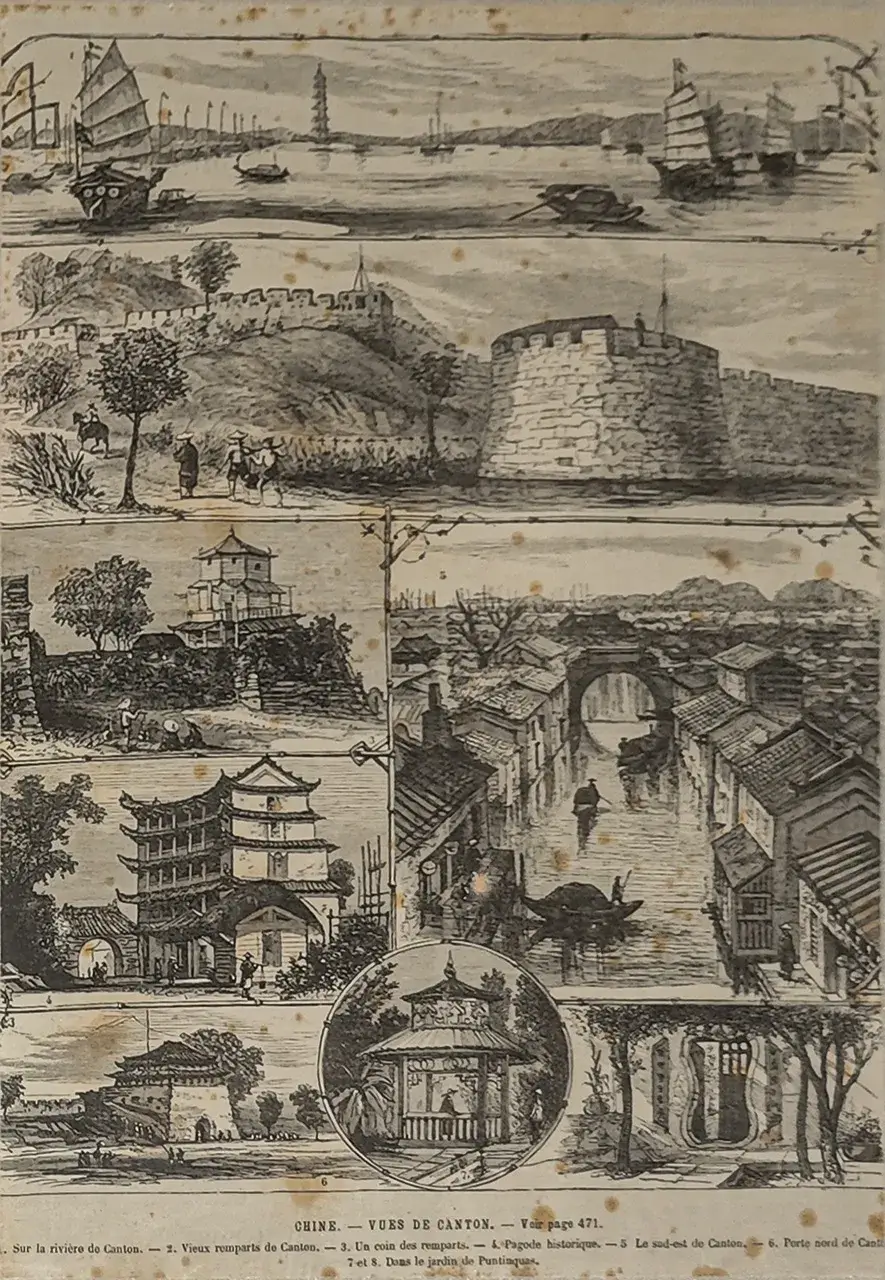 5
4
6
CHINE. — VUES DE CANTON. — Voir page 471.
. Sur la rivière de Canton. — 2. Vieux remparts de Canton. — 3. Un coin des remparts. — 4. Pagode historique. — 5 Le sud-est de Canton. — 6. Porte nord de Cant
7 et 8. Dans le jardin de Puntinquas.